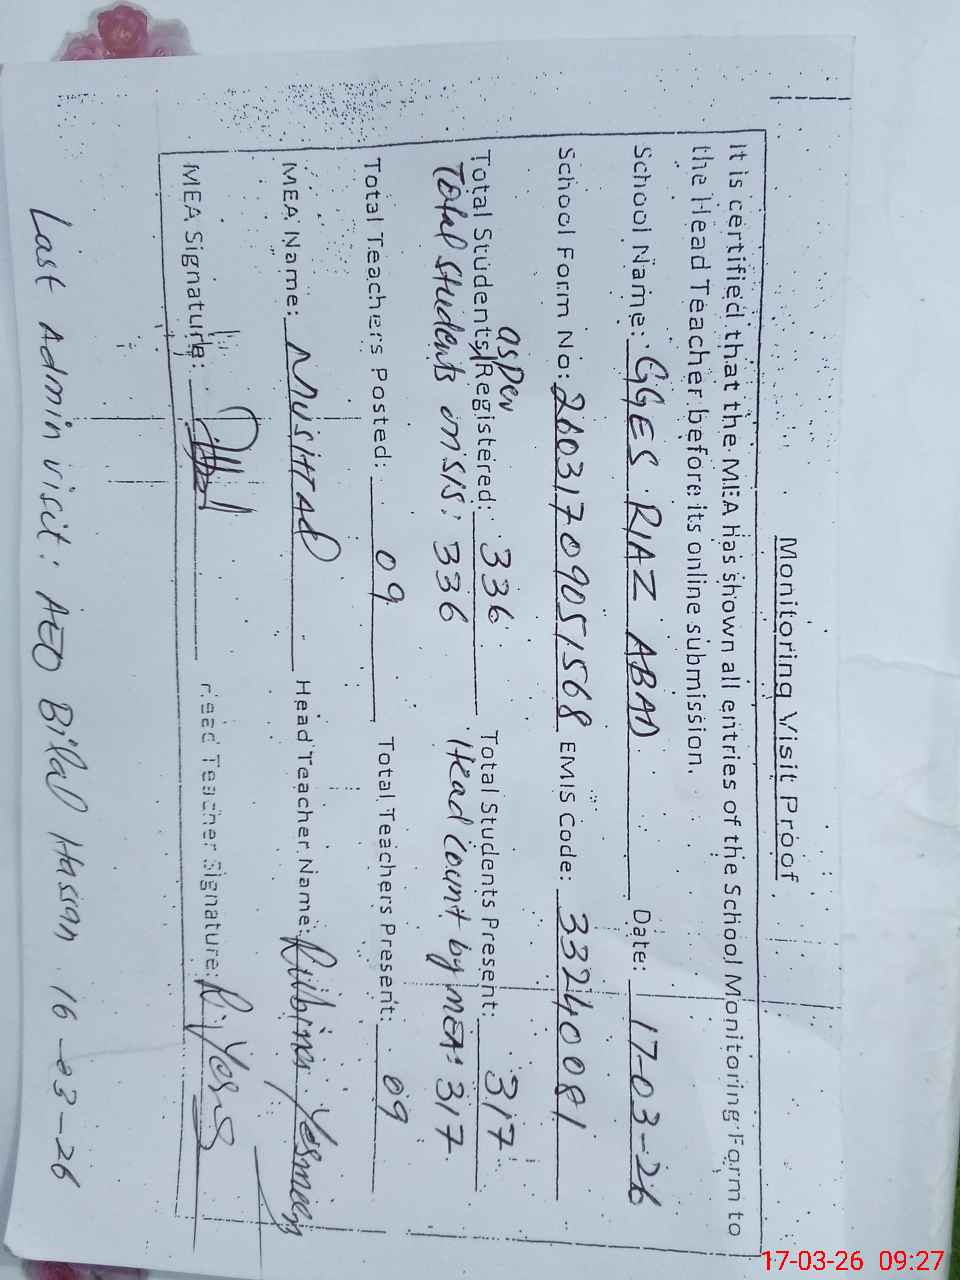 Monitoring Visit Proof
It is certified that the MEA has shown all entries of the School Monitoring Form to
the Head Teacher before its online submission.
School Name: GGES RIAZ ABAD Date: 17-03-26
School Form No: 26031709051568 EMIS Code: 33240081
as per
Total Students Registered: 336 Total Students Present: 317
Total students in SIS: 336 Head count by MEA: 317
Total Teachers Posted: 09 Total Teachers Present: 09
MEA Name: Head Teacher Name: Rubina Yasmeen
MEA Signature: Head Teacher Signature:
Last Admin visit: AEO Bilal Hassan 16-03-26
17-03-26 09:27